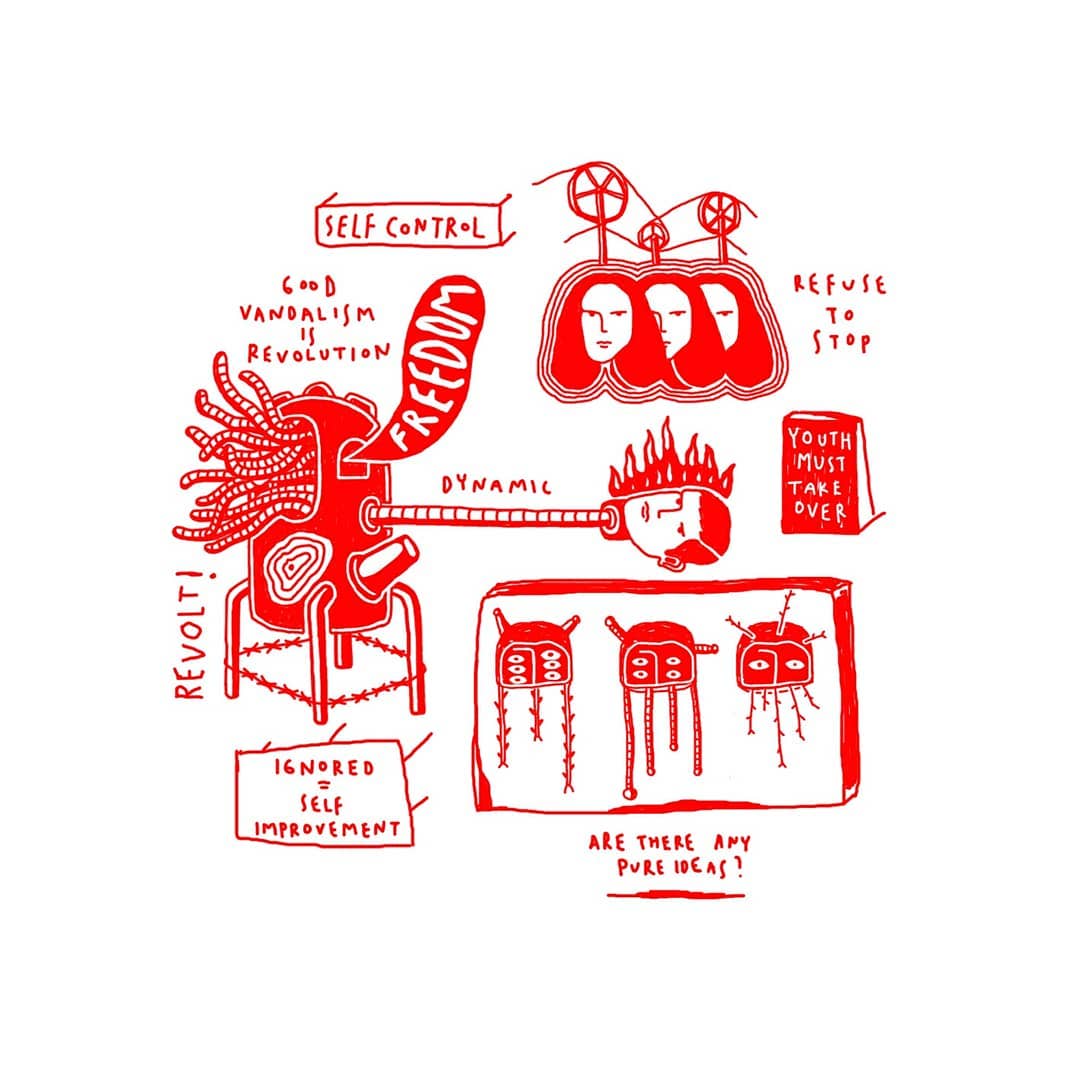 SELF CONTROL
GOOD
VANDALISM
IS
REVOLUTION
FREEDOM
REFUSE
TO
STOP
DYNAMIC
YOUTH
MUST
TAKE
OVER
REVOLT!
IGNORED
=
SELF
IMPROVEMENT
ARE THERE ANY
PURE IDEAS?